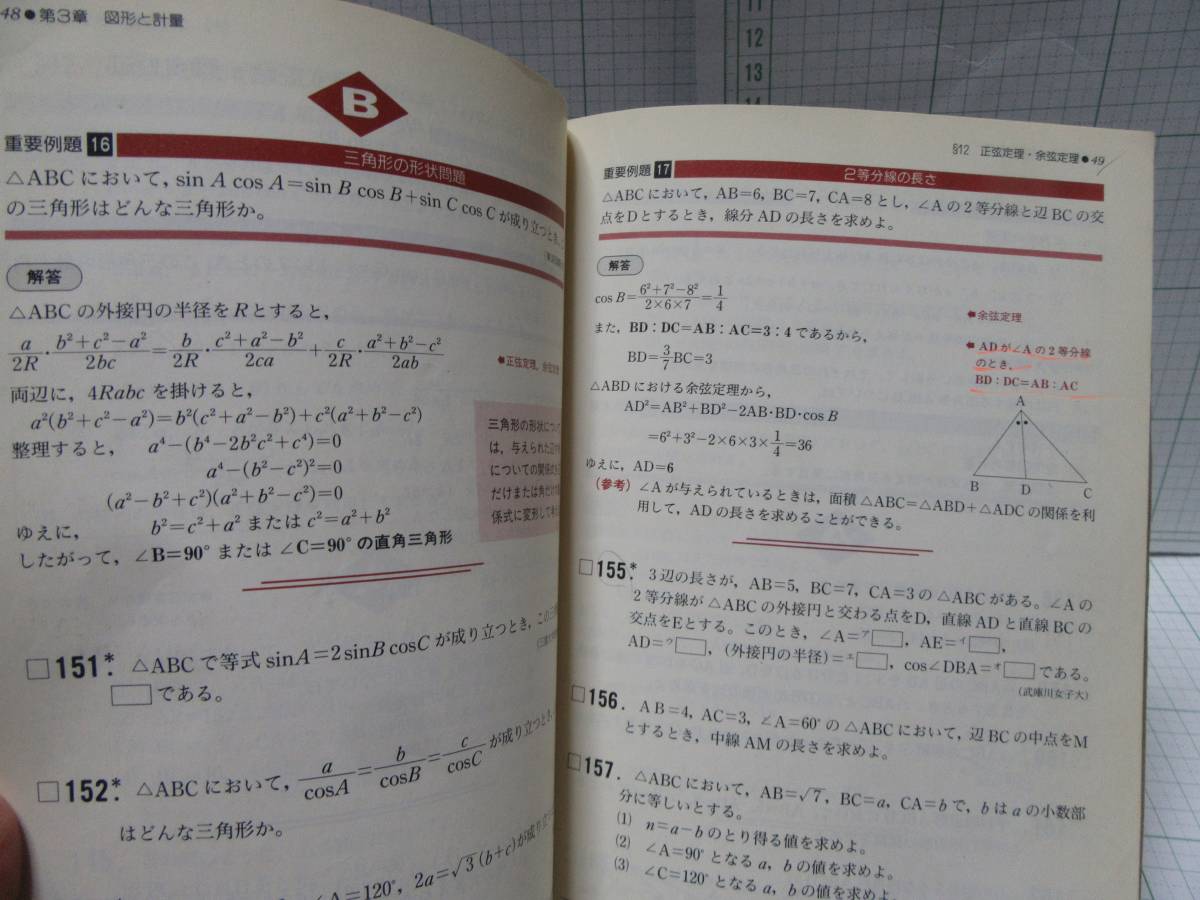 48●第3章 図形と計量
B
重要例題 16
三角形の形状問題
△ABC において, sin A cos A=sin B cos B+sin C cos C が成り立つとき, こ
の三角形はどんな三角形か。
解答
△ABC の外接円の半径を R とすると,
a/2R・(b²+c²−a²)/2bc=b/2R・(c²+a²−b²)/2ca+c/2R・(a²+b²−c²)/2ab
←正弦定理, 余弦定
両辺に, 4Rabc を掛けると,
a²(b²+c²−a²)=b²(c²+a²−b²)+c²(a²+b²−c²)
整理すると, a⁴−(b⁴−2b²c²+c⁴)=0
a⁴−(b²−c²)²=0
(a²−b²+c²)(a²+b²−c²)=0
ゆえに, b²=c²+a² または c²=a²+b²
したがって, ∠B=90° または ∠C=90° の直角三角形
三角形の形状につい
は, 与えられた
についての関係
だけまたは角だけ
係式に変形して考
□151*. △ABC で等式 sinA=2sinBcosC が成り立つとき, この三
□である。
□152*. △ABC において, a/cosA=b/cosB=c/cosC が成り立つとき,
はどんな三角形か。
A=120°, 2a=√3(b+c) が成り
§12 正弦定理・余弦定理●49
重要例題 17
2等分線の長さ
△ABC において, AB=6, BC=7, CA=8 とし, ∠A の2等分線と辺 BC の交
点を D とするとき, 線分 AD の長さを求めよ。
解答
cos B=(6²+7²−8²)/(2×6×7)=1/4
←余弦定理
また, BD：DC=AB：AC=3：4 であるから,
BD=3/7 BC=3
←AD が ∠A の2等分線
のとき,
BD：DC=AB：AC
△ABD における余弦定理から,
AD²=AB²+BD²−2AB・BD・cos B
=6²+3²−2×6×3×1/4=36
ゆえに, AD=6
A
B D C
(参考) ∠A が与えられているときは, 面積 △ABC=△ABD+△ADC の関係を利
用して, AD の長さを求めることができる。
□155*. 3辺の長さが, AB=5, BC=7, CA=3 の △ABC がある。∠A の
2等分線が △ABC の外接円と交わる点を D, 直線 AD と直線 BC の
交点を E とする。このとき, ∠A=ア□, AE=イ□,
AD=ウ□, (外接円の半径)=エ□, cos∠DBA=オ□ である。
(武庫川女子大)
□156. AB=4, AC=3, ∠A=60° の △ABC において, 辺 BC の中点を M
とするとき, 中線 AM の長さを求めよ。
□157. △ABC において, AB=√7, BC=a, CA=b で, b は a の小数部
分に等しいとする。
(1) n=a−b のとり得る値を求めよ。
(2) ∠A=90° となる a, b の値を求めよ。
(3) ∠C=120° となる a, b の値を求めよ.
11
12
13
14